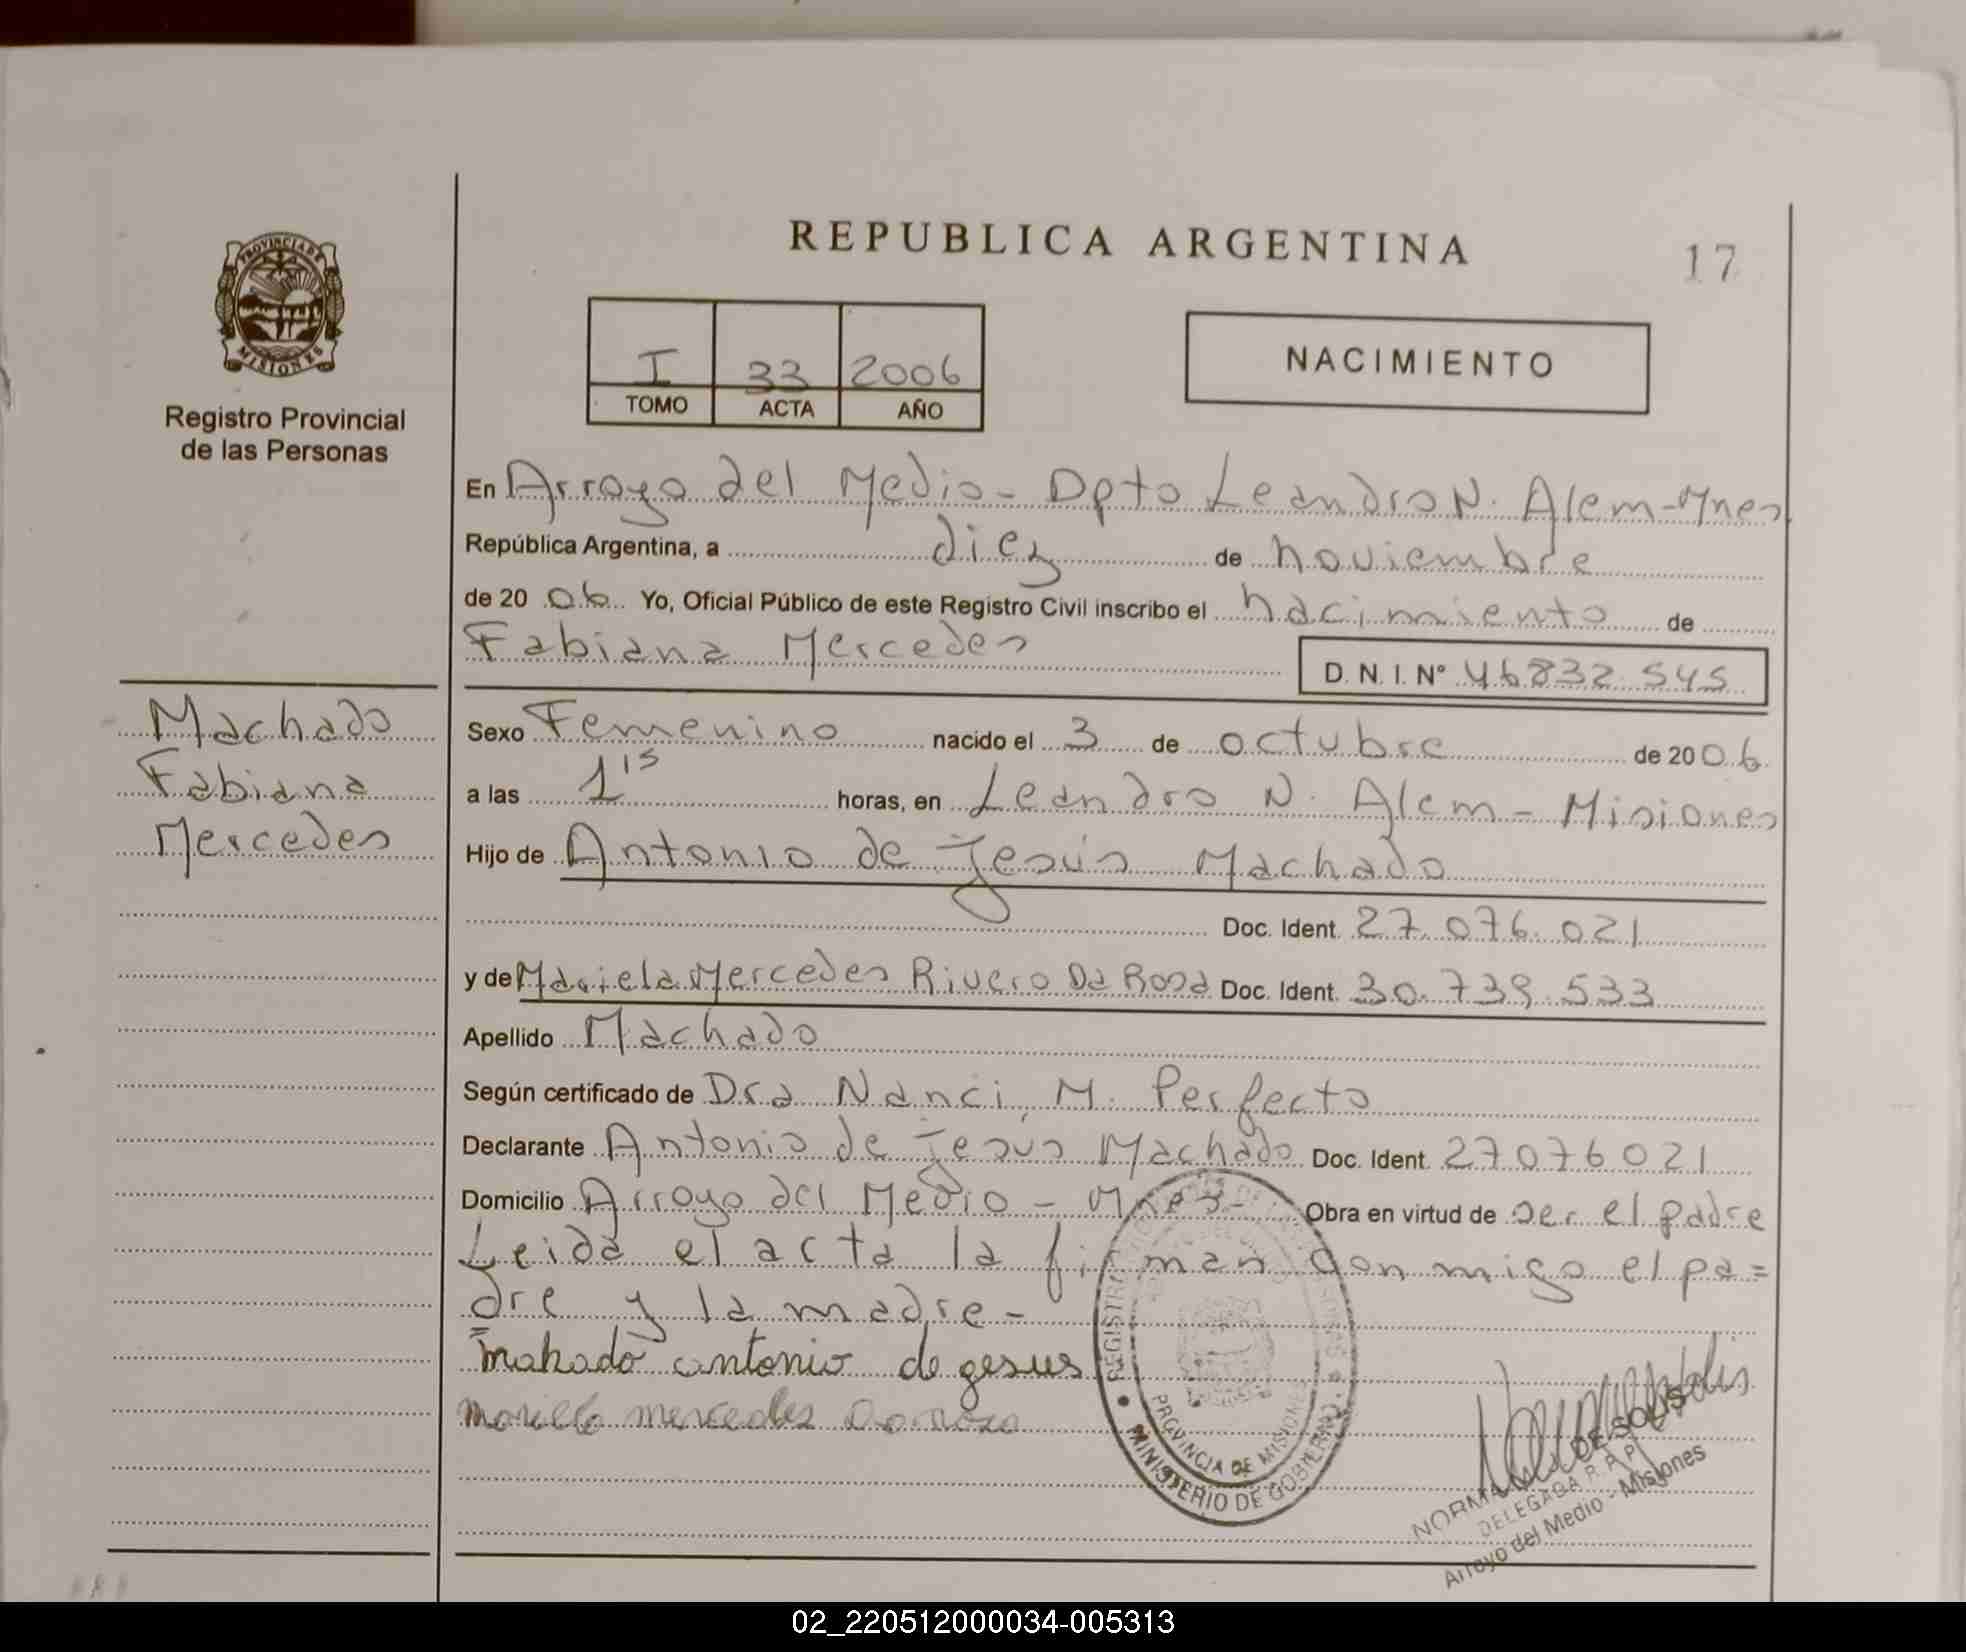 REPUBLICA ARGENTINA
17
PROVINCIA DE
MISIONES
Registro Provincial
de las Personas
I 33 2006
TOMO ACTA AÑO
NACIMIENTO
En Arroyo del Medio - Dpto Leandro N. Alem - Mnes
República Argentina, a diez de noviembre
de 20 06 Yo, Oficial Público de este Registro Civil inscribo el nacimiento de
Fabiana Mercedes
D. N. I. Nº 46832 545
Machado
Fabiana
Mercedes
Sexo Femenino nacido el 3 de octubre de 20 06
a las 1 15 horas, en Leandro N. Alem - Misiones
Hijo de Antonio de Jesús Machado
Doc. Ident. 27.076.021
y de Mariela Mercedes Rivero Da Rosa Doc. Ident. 30.739.533
Apellido Machado
Según certificado de Dra Nanci M. Perfecto
Declarante Antonio de Jesús Machado Doc. Ident. 27076021
Domicilio Arroyo del Medio - Mnes - Obra en virtud de ser el padre
Leida el acta la firman con migo el pa=
dre y la madre -
mahado antonio de gesus
mariela mercedes Da roza
REGISTRO DE LAS PERSONAS
PROVINCIA DE MISIONES
MINISTERIO DE GOBIERNO
NORMA DE SOLIS
DELEGADA R. P. P.
Arroyo del Medio - Misiones
02_220512000034-005313